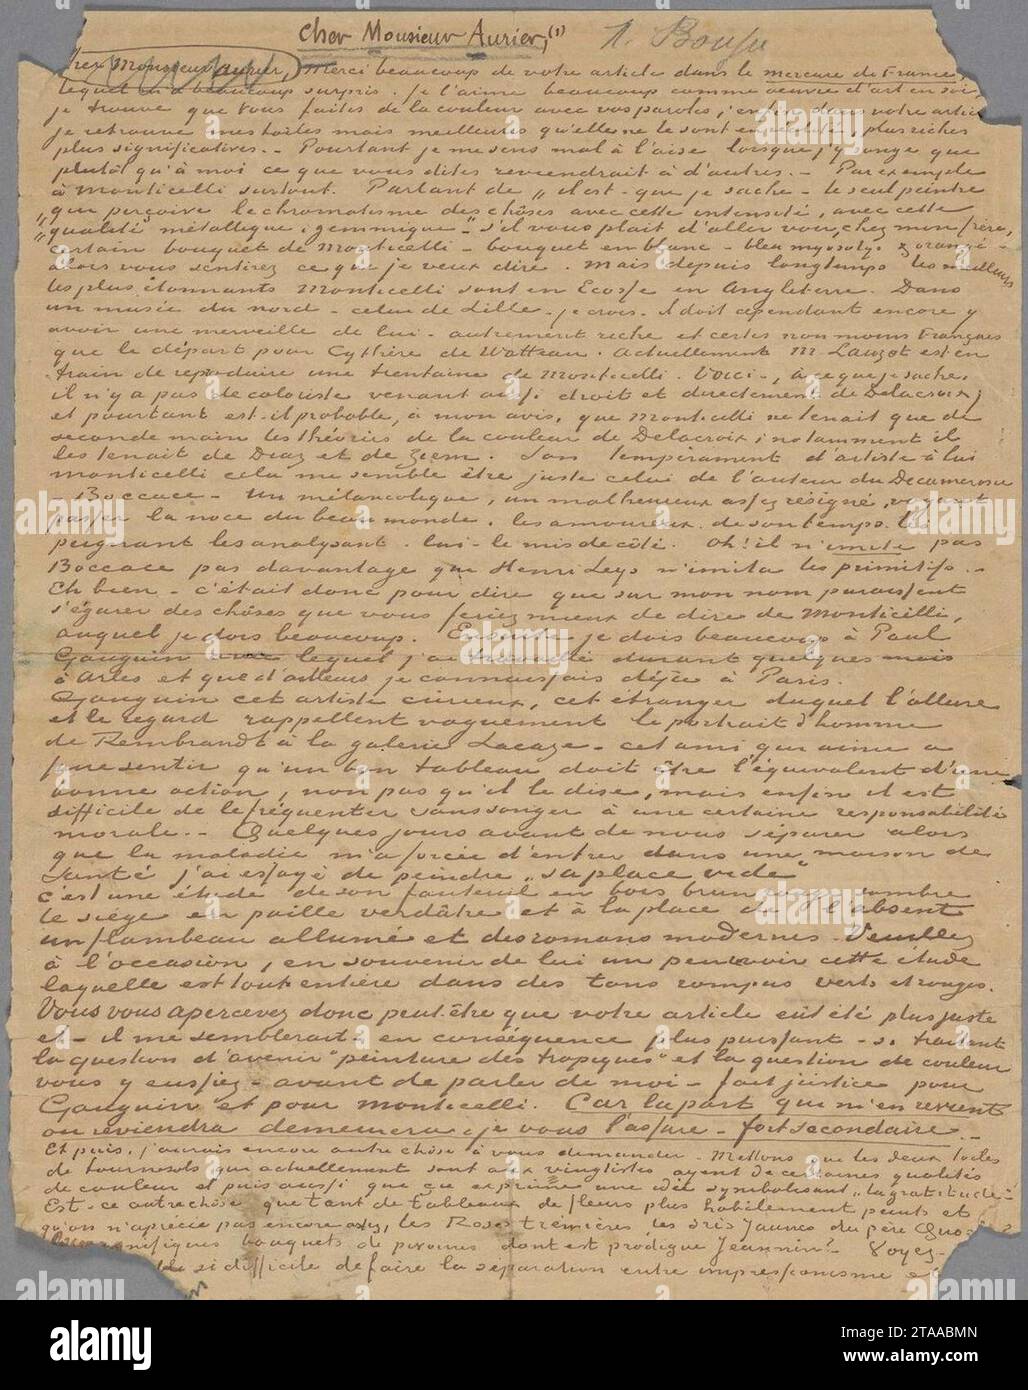 Cher Monsieur Aurier, (1)
Cher Monsieur Aurier, Merci beaucoup de votre article dans le mercure de France,
lequel m'a beaucoup surpris. je l'aime beaucoup comme oeuvre d'art en soi,
je trouve que vous faites de la couleur avec vos paroles; enfin dans votre article
je retrouve mes toiles mais meilleures qu'elles ne le sont en réalité, plus riches
plus significatives.. Pourtant je me sens mal à l'aise lorsque j'y songe que
plutôt qu'à moi ce que vous dites reviendrait à d'autres. - Par exemple
à Monticelli surtout. Parlant de „il est - que je sache - le seul peintre
„qui perçoive le chromatisme des chôses avec cette intensité, avec cette
„qualité métallique, gemmique" - s'il vous plait d'aller voir, chez mon frère,
certain bouquet de Monticelli - bouquet en blanc - bleu myosotys & orangé -
alors vous sentirez ce que je veux dire. Mais depuis longtemps les meilleurs
les plus étonnants Monticelli sont en Ecosse en Angleterre. Dans
un musée du nord - celui de Lille - je crois. il doit cependant encore y
avoir une merveille de lui - autrement riche et certes non moins Français
que le départ pour Cythère de Watteau. Actuellement M. Lauzet est en
train de reproduire une trentaine de Monticelli. Voici -, à ce que je sache,
il n'y a pas de coloriste venant aussi droit et directement de Delacroix;
et pourtant est-il probable, à mon avis, que Monticelli ne tenait que de
seconde main les théories de la couleur de Delacroix; notamment il
les tenait de Diaz et de Ziem. Son tempérament d'artiste à lui
monticelli cela me semble être juste celui de l'auteur du Decameron
- Boccace - Un mélancolique, un malheureux assez résigné, voyant
passer la noce du beau monde. les amoureux de son temps. les
peignant les analysant. lui - le mis de côté. Oh! il n'imite pas
Boccace pas davantage que Henri Leys n'imita les primitifs. -
Eh bien - c'était donc pour dire que sur mon nom paraissent
s'égarer des chôses que vous feriez mieux de dire de Monticelli,
auquel je dois beaucoup. Ensuite je dois beaucoup à Paul
Gauguin avec lequel j'ai travaillé durant quelques mois
à Arles et que d'ailleurs je connaissais déjà à Paris.
Gauguin cet artiste curieux, cet étranger duquel l'allure
et le regard rappellent vaguement le portrait d'homme
de Rembrandt à la galerie Lacaze - cet ami qui aime à
faire sentir qu'un bon tableau doit être l'équivalent d'une
bonne action, non pas qu'il le dise, mais enfin il est
difficile de le fréquenter sans songer à une certaine responsabilité
morale. - Quelques jours avant de nous séparer alors
que la maladie m'a forcé d'entrer dans une maison de
santé j'ai essayé de peindre „sa place vide"
c'est une étude de son fauteuil en bois brun rouge sombre
le siège en paille verdâtre et à la place de l'absent
un flambeau allumé et des romans modernes. Veuillez
à l'occasion, en souvenir de lui un peu revoir cette étude
laquelle est tout entière dans des tons rompus verts et rouges.
Vous vous apercevez donc peut-être que votre article eût été plus juste
et - il me semblerait - en conséquence plus puissant - si traitant
la question d'avenir "peinture des tropiques" et la question de couleur
vous y eussiez - avant de parler de moi - fait justice pour
Gauguin et pour Monticelli. Car la part qui m'en revient
ou reviendra demeurera, je vous l'assure - fort secondaire. -
Et puis, j'aurais encore autre chôse à vous demander. Mettons que les deux toiles
de tournesols qui actuellement sont aux vingtistes ayent de certaines qualités
de couleur et puis aussi que ça exprime une idée symbolisant „la gratitude"-
Est-ce autre chôse que tant de tableaux de fleurs plus habilement peints et
qu'on n'apprécie pas encore assez, les Roses tremières les Iris Jaunes du père Quost?
magnifiques bouquets de pivoines dont est prodigue Jeannin? - Voyez-
si difficile de faire la séparation entre impressionisme et
alamy
2CTAABMN
www.alamy.com